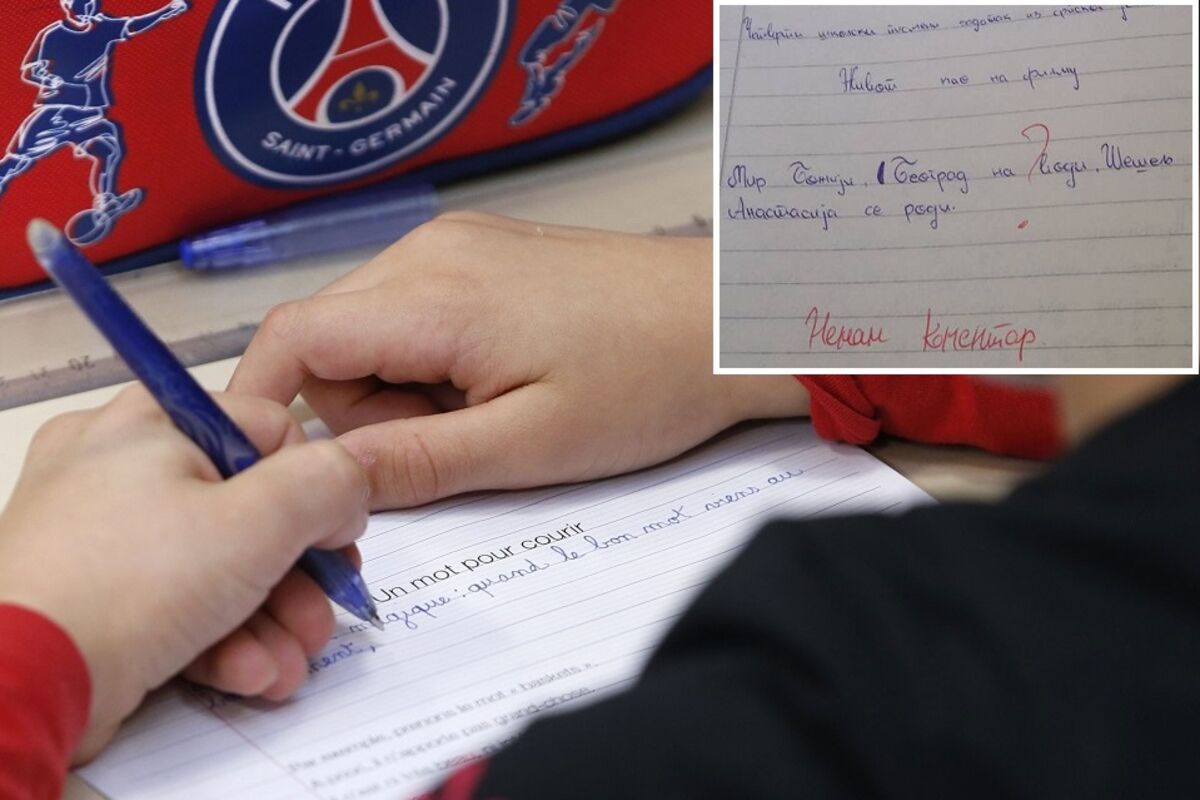 SAINT-GERMAIN
Четврти школски писмени задатак из српског
Живот као на филму
?
Мир Божији, Београд на води, Шешељ
Анастасија се роди.
Немам коментар.
30 31
Un mot pour courir
magique : quand le bon mot viens au
ment,
Par exemple, prenons le mot « baskets ».
A priori, il n'apporte pas grand-chose.